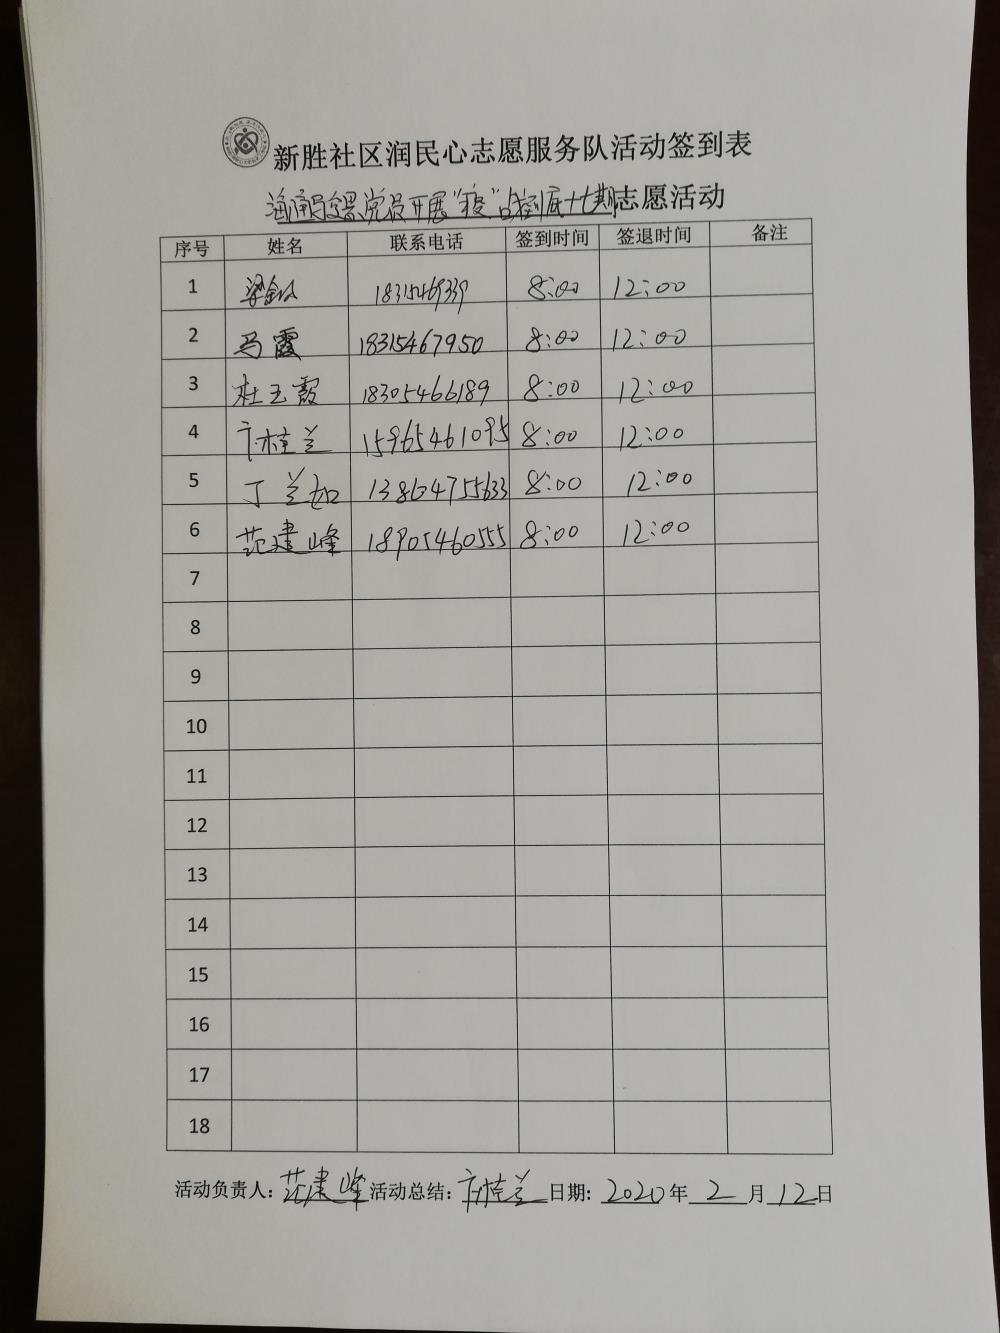 新胜社区润民心志愿服务队活动签到表
党员开展“疫”战到底十七期志愿活动
序号 姓名 联系电话 签到时间 签退时间 备注
1 梁 8:00 12:00
2 马霞 18315467950 8:00 12:00
3 杜玉霞 18305466189 8:00 12:00
4 卞桂兰 15965461095 8:00 12:00
5 丁兰 13864755633 8:00 12:00
6 范建峰 18905460555 8:00 12:00
7
8
9
10
11
12
13
14
15
16
17
18
活动负责人：范建峰 活动总结：卞桂兰 日期：2020年2月12日